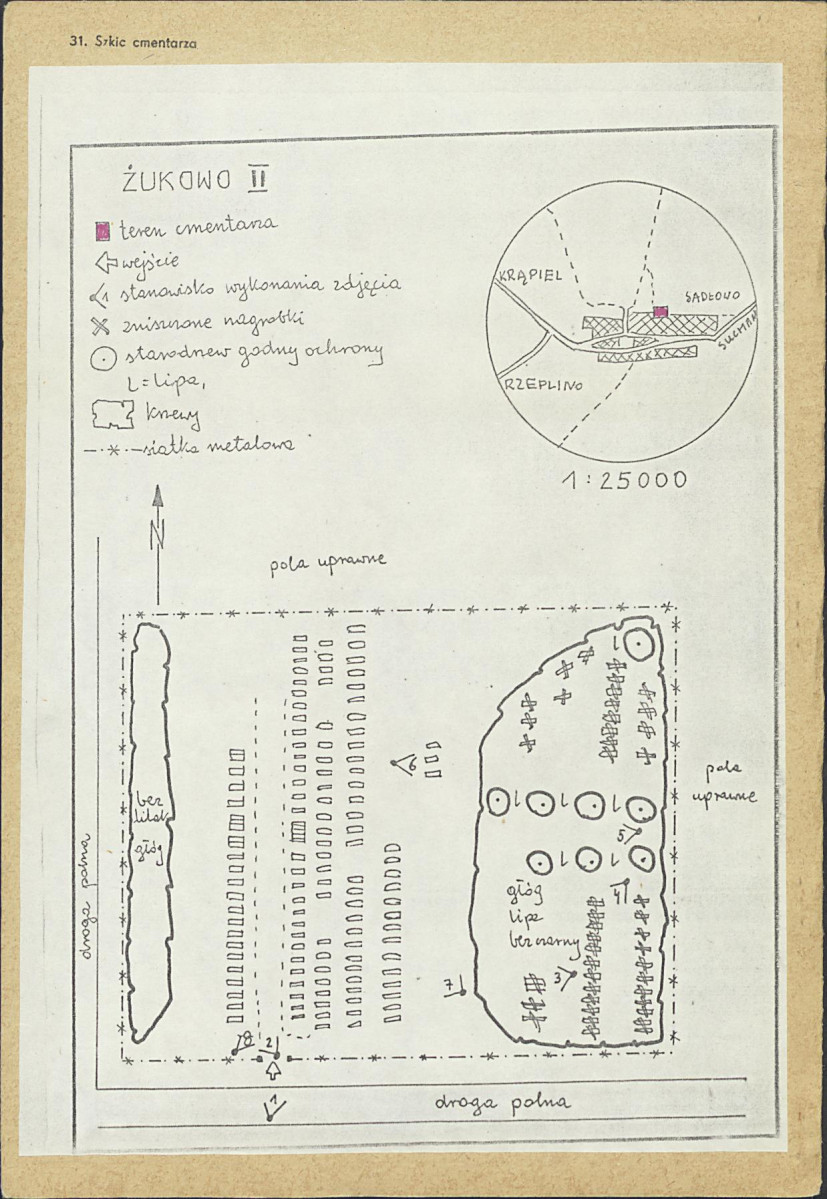 31. Szkic cmentarza
ŻUKOWO II
teren cmentarza
wejście
1 stanowisko wykonania zdjęcia
zniszczone nagrobki
starodrzew godny ochrony
L = lipa,
krzewy
siatka metalowa
KRĄPIEL
SADŁOWO
SUCHAŃ
RZEPLINO
1:25000
N
pola uprawne
L
6
bez
lilak
głóg
pola
uprawne
L L L
5
L L
droga polna
głóg
lipa
bez czarny
4
3
7
8
2
1
droga polna